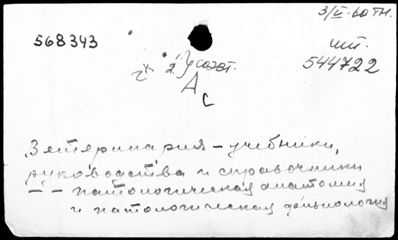 3/V-60 тн.
568343
шт.
544722
2 Усозт.
А
с
Ветеринария - учебники,
руководства и справочники
- - патологическая анатомия
и патологическая физиология